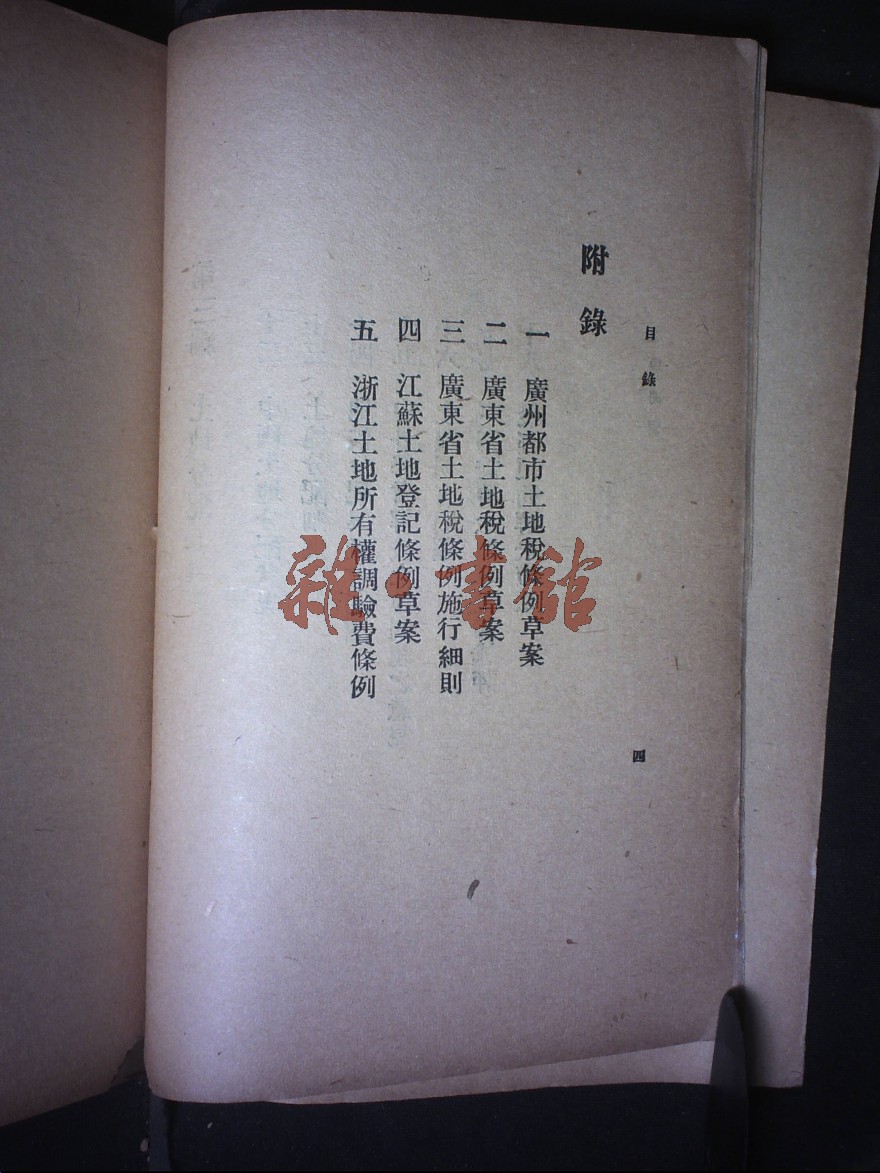 目錄
四
附錄
一 廣州都市土地稅條例草案
二 廣東省土地稅條例草案
三 廣東省土地稅條例施行細則
四 江蘇土地登記條例草案
五 浙江土地所有權調驗費條例
雜·書館